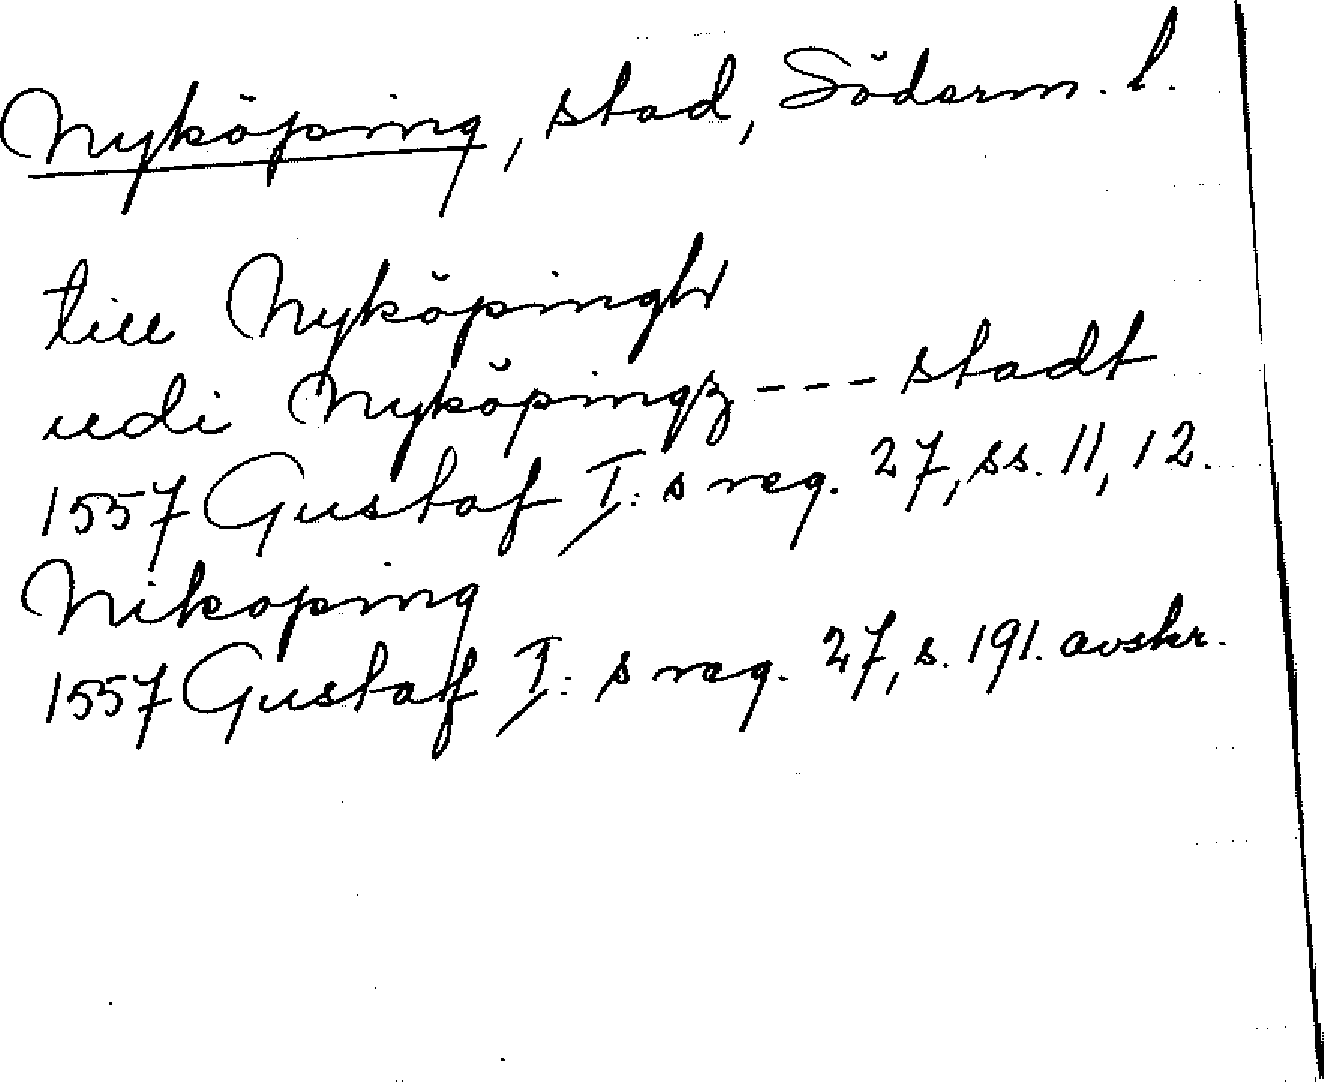 Nyköping, stad, Söderm. l.
till Nyköpingh
udi Nyköpingz --- stadt
1557 Gustaf I:s reg. 27, ss. 11, 12.
Nikoping
1557 Gustaf I:s reg. 27, s. 191. avskr.